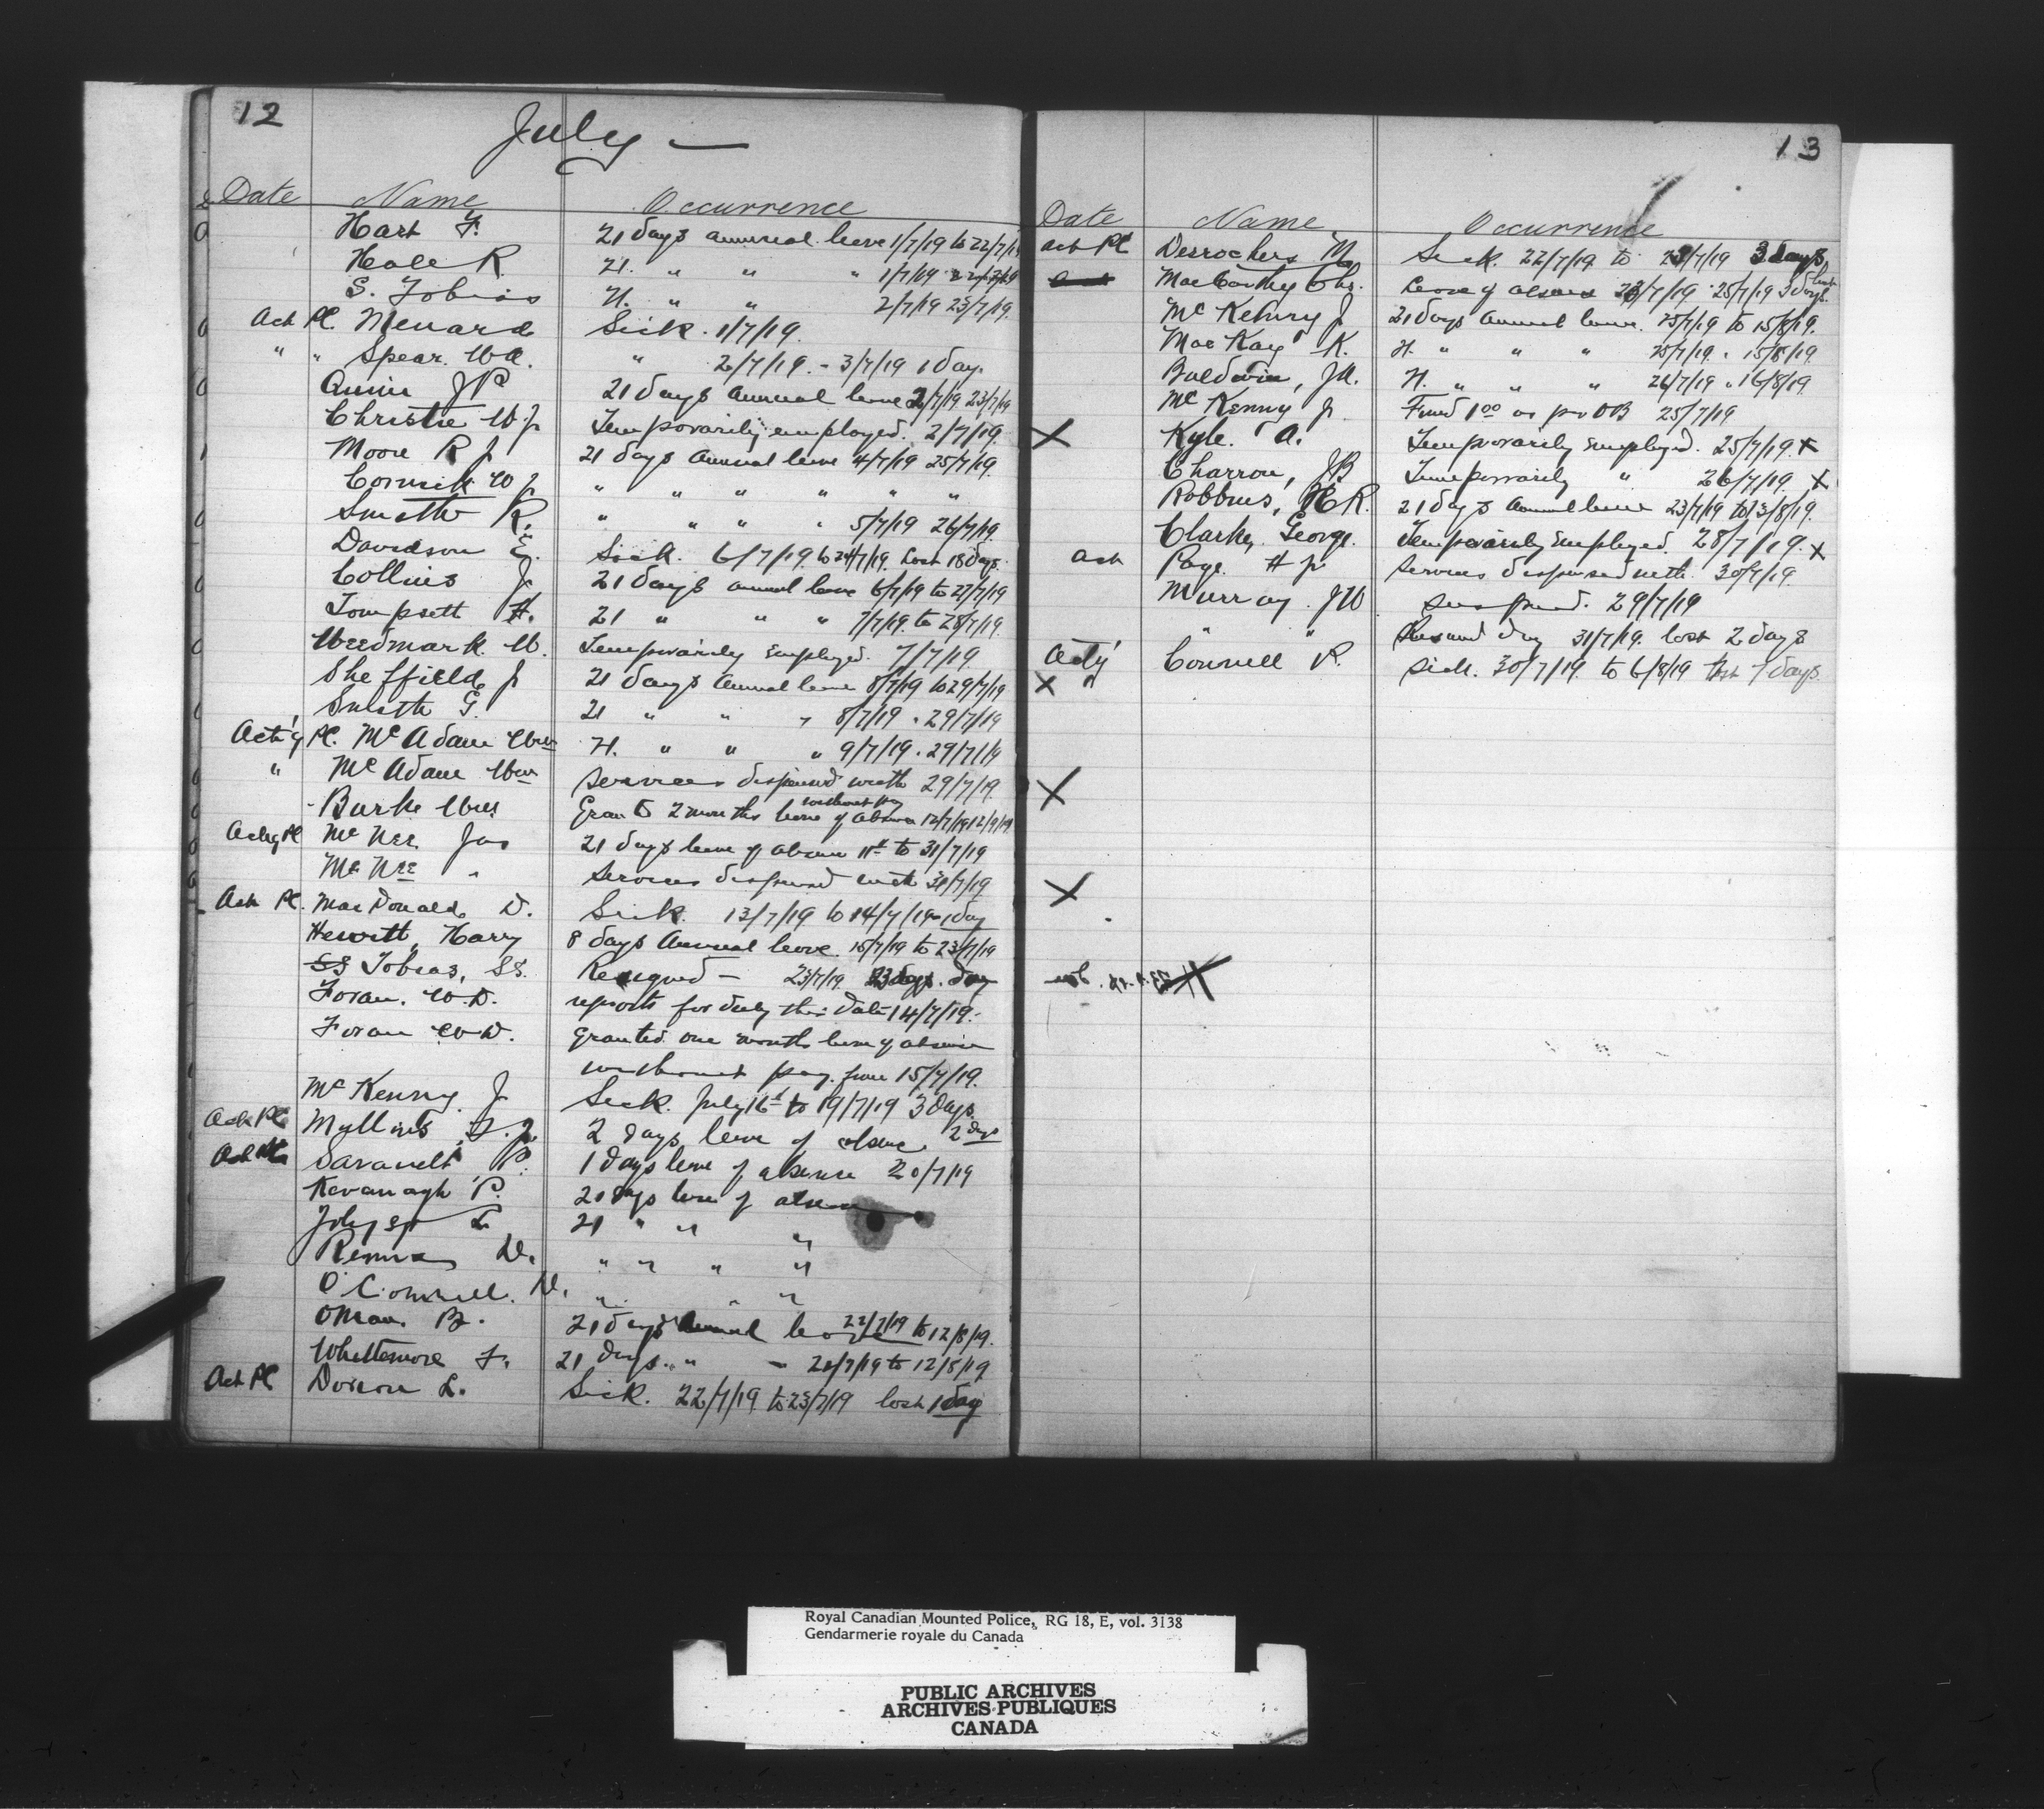 12
July —
Date Name Occurrence
Hart F. 21 days annual leave 1/7/19 to 22/7/19
Heale R. 21. " " " 1/7/19 22/7/19
S. Tobias 21. " " 2/7/19 23/7/19.
Act Pl. Menard Sick. 1/7/19.
" " Spear. Wa. " 2/7/19. - 3/7/19 1 day.
JP 21 days annual leave 2/7/19 23/7/19
Christie W J Temporarily employed. 2/7/19.
Moore R J 21 days annual leave 4/7/19 25/7/19.
Cornick W J " " " " " "
Smith R. " " " " 5/7/19 26/7/19.
Davidson E. Sick. 6/7/19. to 24/7/19. Lost 18 days.
Collins J. 21 days annual leave 6/7/19 to 27/7/19
Tompsett H. 21 " " " 7/7/19. to 28/7/19.
Weedmark. W. Temporarily employed. 7/7/19.
Sheffield J 21 days annual leave 8/7/19 to 29/7/19
Smith G. 21 " " " 8/7/19 " 29/7/19
Act'g Pl. Mc Adam Wm 21. " " " 9/7/19 . 29/7/19
" Mc Adam Wm Services dispensed with 29/7/19.
Burke Wm. Grant 2 months leave of absence without pay 12/7/19 12/9/19
Actg Pl Mc Nee Jas 21 days leave of absence 11th to 31/7/19
Mc Nee " Services dispensed with 31/7/19
Act Pl. MacDonald D. Sick. 13/7/19 to 14/7/19 - 1 day
Hewitt, Harry 8 days Annual leave. 15/7/19 to 23/7/19
Tobias, SS. Resigned — 23/7/19
Foran. W.D. reports for duty this date 14/7/19.
Foran W.D. Granted one months leave of absence
without pay. from 15/7/19.
Mc Kenny. J Sick. July 16th to 19/7/19 3 days.
Act Pl 2 days leave of absence. 2 days
P. 1 days leave of absence 20/7/19
Kavanagh P. 21 days leave of absence
L 21 " " "
D. " " " "
O'Connell. D. " " "
B. 21 days annual leave 22/7/19 to 12/8/19.
Whittemore F. 21 days. " — 21/7/19 to 12/8/19
Act Pl Doiron L. Sick. 22/7/19 to 23/7/19 lost 1 day
13
Date Name Occurrence
Act Pl Desrochers M Sick. 22/7/19 to 3 days.
MacCarthy Chs. Leave of absence 25/7/19 3 days. lost
Mc Kenny J 21 days annual leave. 25/7/19 to 15/8/19.
MacKay K. 21. " " " 25/7/19. " 15/8/19
Baldwin, JA. 21. " " " 26/7/19 " 16/8/19
Mc Kenny J. Fined 1.00 as per OB 25/7/19
X Kyle. A. Temporarily Employed. 25/7/19. x
Charron, JB Temporarily " 26/7/19 x
Robbins, H R. 21 days annual leave 23/7/19 to 13/8/19.
Clarke, George. Temporarily Employed. 28/7/19. x
Act Page. H J Services dispensed with. 30/7/19.
Murray. JW Suspend. 29/7/19
" " Resumed duty 31/7/19. lost 2 days
Act'g Connell R. Sick. 30/7/19. to 6/8/19 lost 7 days.
X "
X
X
Royal Canadian Mounted Police, RG 18, E, vol. 3138
Gendarmerie royale du Canada
PUBLIC ARCHIVES
ARCHIVES PUBLIQUES
CANADA